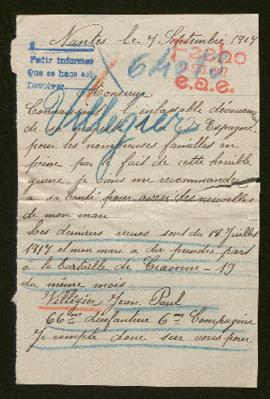 Nantes le 7 Septembre 1917
1
Pedir informes
Que se hace así
Devolver
Fecho
SET. 1917
e.a.e.
Villégier
Monsieur
Connaissant l'inlassable dévouement
de d'Espagne
pour les nombreuses familles en
peine par le fait de cette horrible
guerre je viens me recommander
a sa bonté pour avoir des nouvelles
de mon mari
Les dernières reçues sont du 18 Juillet
1917 et mon mari a du prendre part
à la bataille de Craonne - 19
du même mois.
Villégier Jean Paul
66ème d'infanterie 6ème Compagnie
Je compte donc sur vous pour